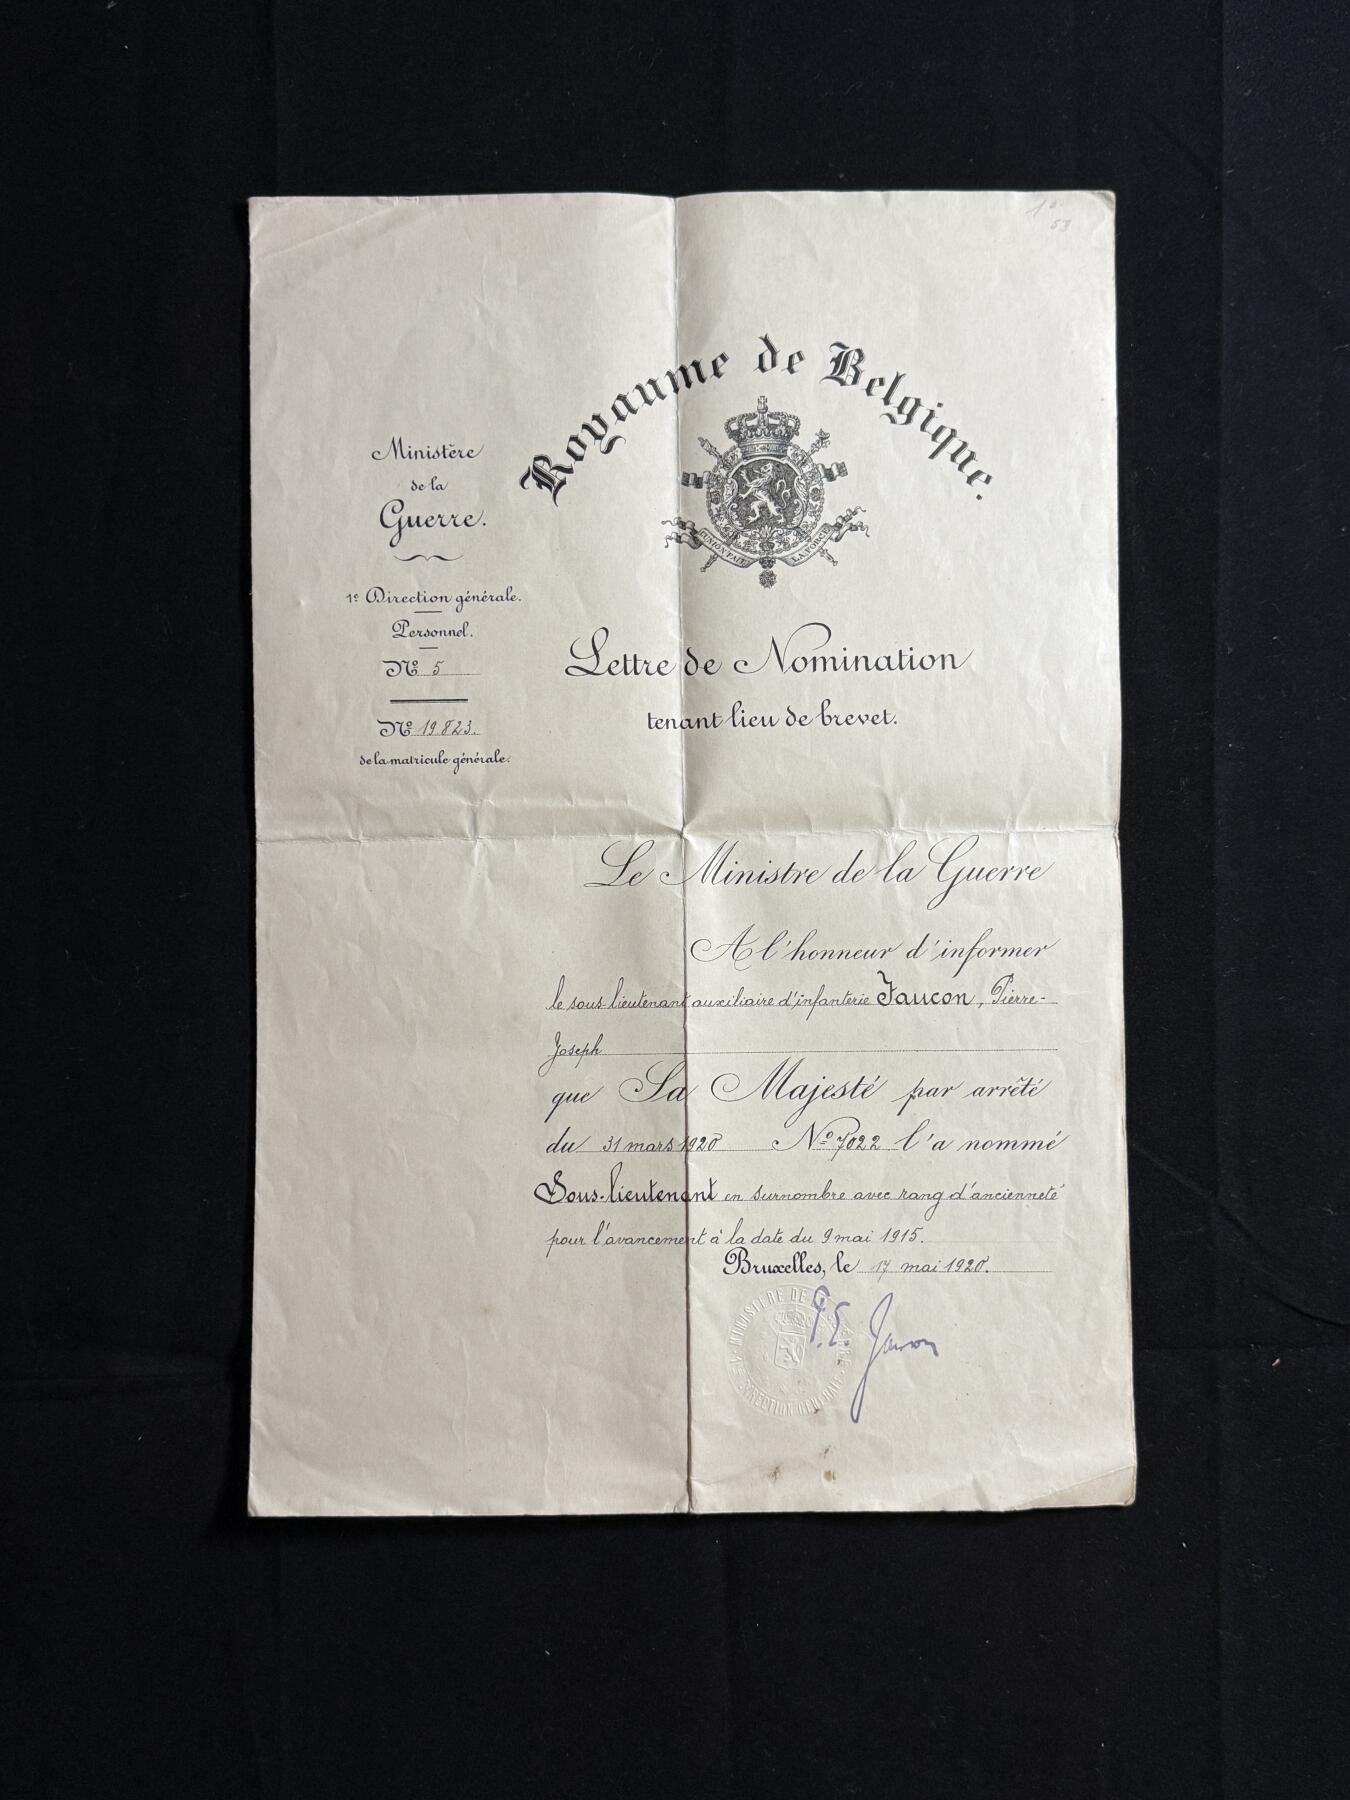 1º
53
Royaume de Belgique.
L'UNION FAIT LA FORCE
Ministère
de la
Guerre.
1e Direction générale.
Personnel.
Nº 5
Nº 19823.
de la matricule générale.
Lettre de Nomination
tenant lieu de brevet.
Le Ministre de la Guerre
A l'honneur d'informer
le sous-lieutenant auxiliaire d'infanterie Faucon, Pierre-
Joseph
que Sa Majesté par arrêté
du 31 mars 1920 Nº 7022 l'a nommé
Sous-lieutenant en surnombre avec rang d'ancienneté
pour l'avancement à la date du 9 mai 1915.
Bruxelles, le 17 mai 1920.
MINISTÈRE DE
DIRECTION GÉNÉRALE